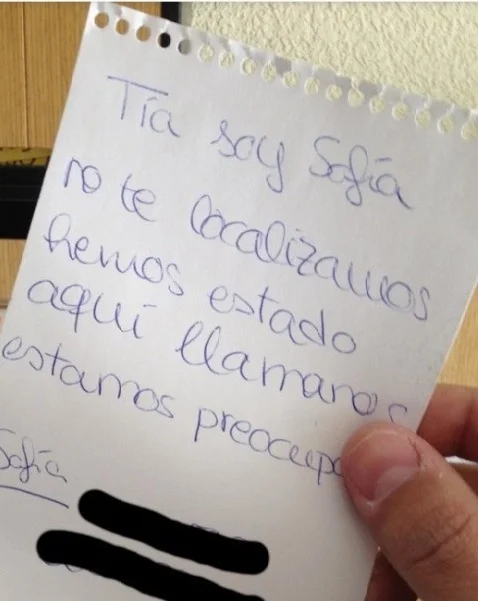 Tía soy Sofía
no te localizamos
hemos estado
aquí llamanos
estamos
Sofía